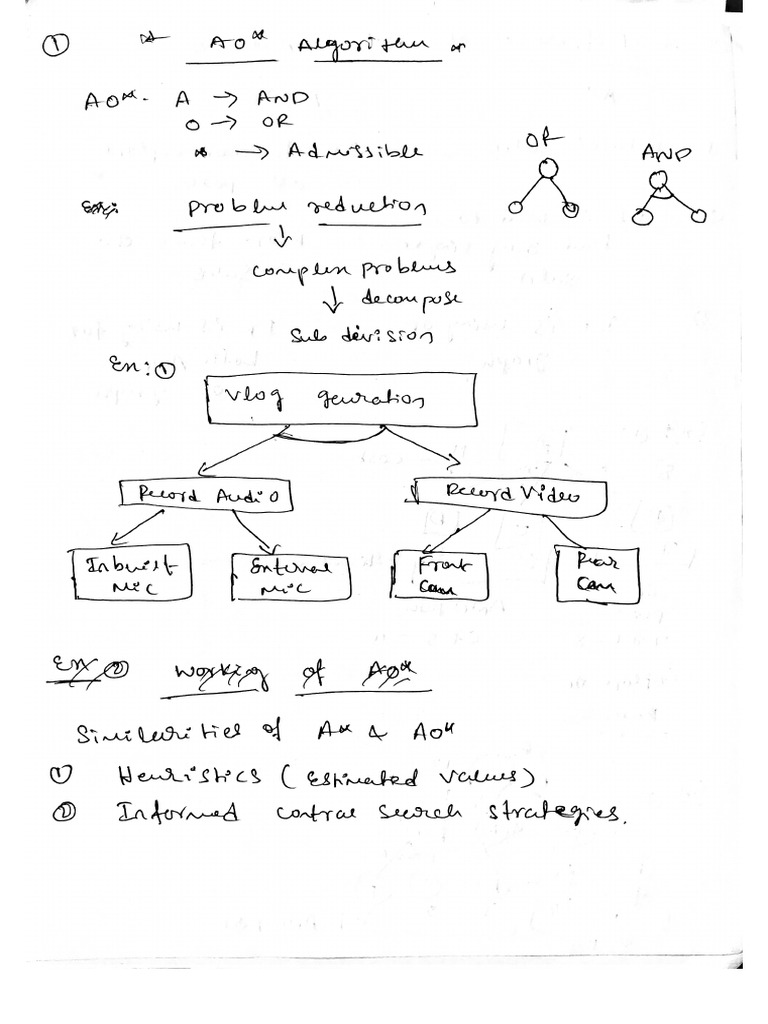 ① * AO* Algorithm *
AO*- A → AND
O → OR
* → Admissible
OR
AND
problem reduction
↓
complex problems
↓ decompose
Sub division
Ex: ①
Vlog generation
Record Audio
Record Video
Inbuilt Mic
External Mic
Front Cam
Rear Cam
Ex ② Working of AO*
Similarities of A* & AO*
① Heuristics (Estimated values).
② Informed control search strategies.